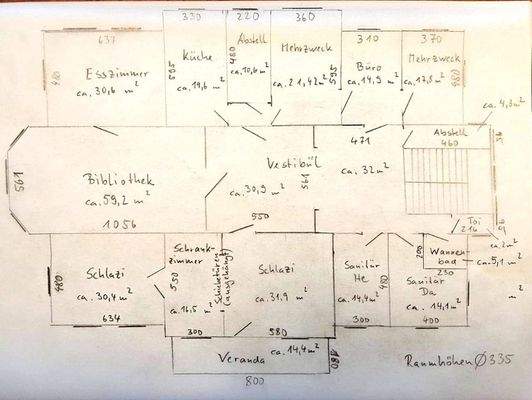 637
330
220
360
310
370
Esszimmer
ca. 30,6 m²
480
Küche
595
ca. 19,6 m²
Abstell
480
ca. 10,6 m²
Mehrzweck
ca. 21,42 m²
595
Büro
ca. 14,9 m²
Mehrzweck
ca. 17,8 m²
480
ca. 4,3 m²
561
Bibliothek
ca. 59,2 m²
1056
Vestibül
ca. 30,9 m²
561
550
471
ca. 32 m²
Abstell
460
96
Toi
216
96
ca. 2 m²
Schlafzi
480
ca. 30,4 m²
634
Schrank-
zimmer
550
ca. 16,5 m²
300
Schiebetüren
(ausgehängt)
Schlafzi
ca. 31,9 m²
580
Sanitär
He
480
ca. 14,4 m²
300
200
Wannen-
bad
230
ca. 5,1 m²
Sanitär
Da
ca. 14,1 m²
400
Veranda
ca. 14,4 m²
180
800
Raumhöhen Ø 335